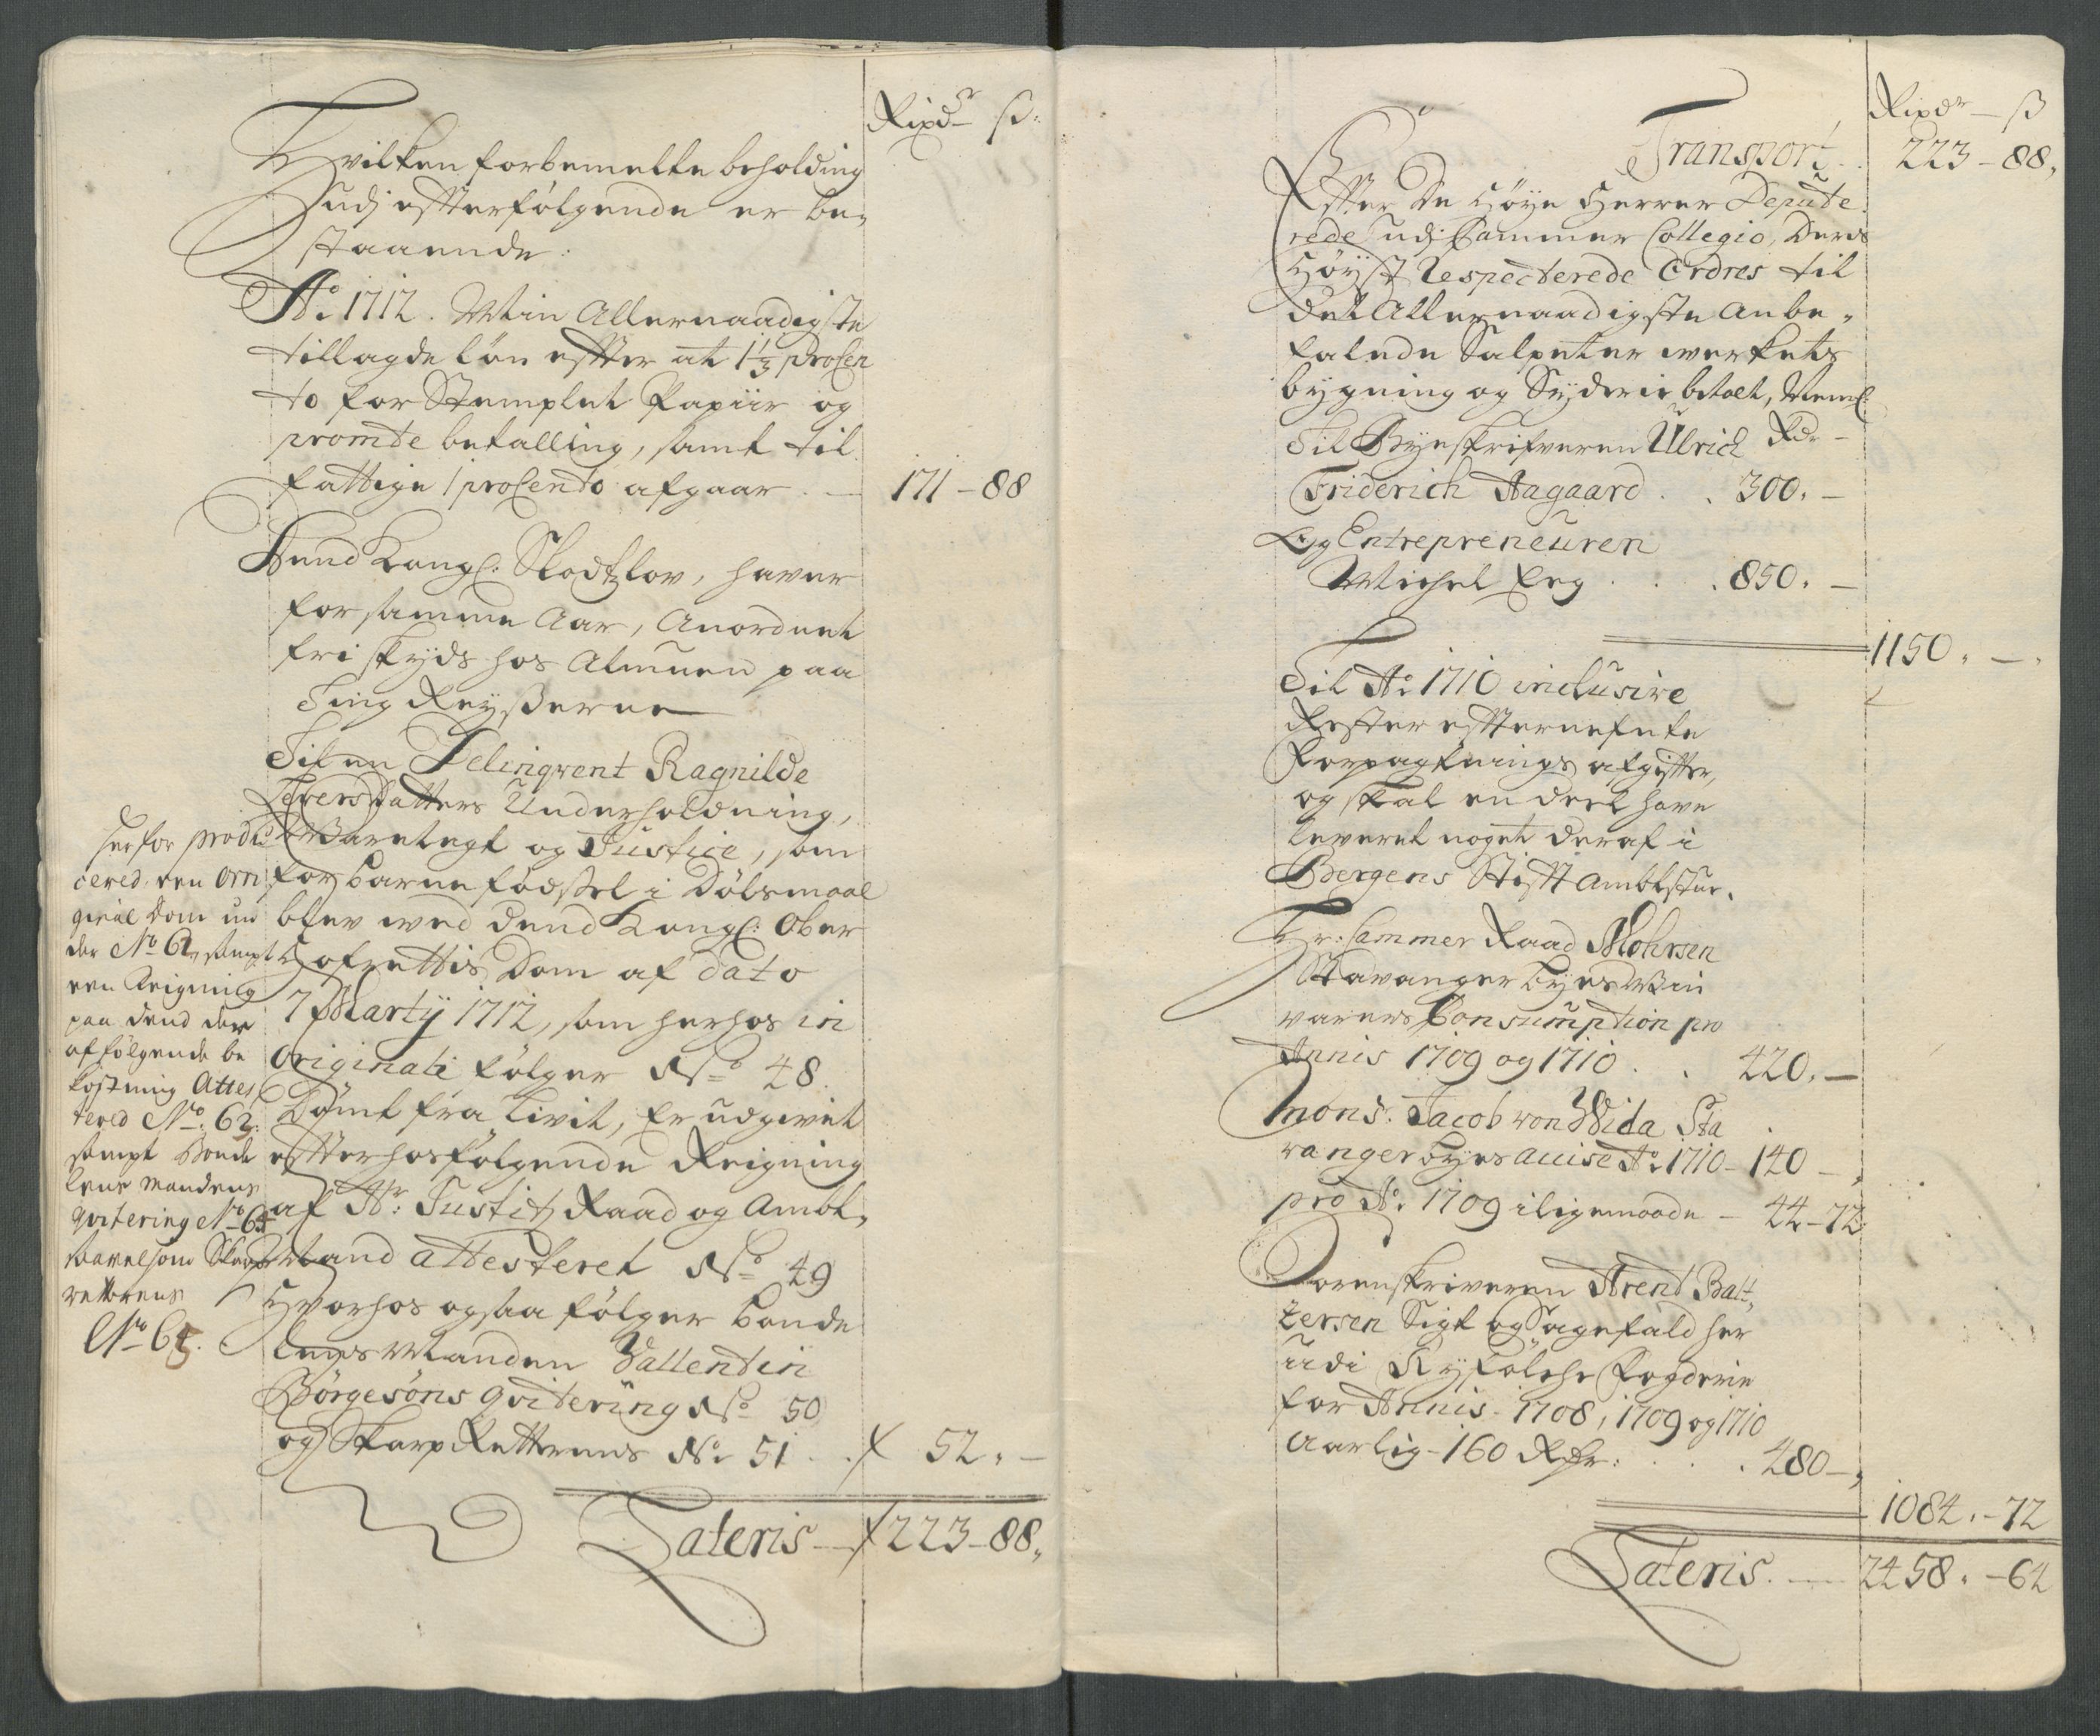 Rixdr ß:
Hvilken forbemelte beholding
udj efterfølgende er be-
staaende:
Ao 1712. Min Allernaadigste
tillagde løn efter at 1⅓ procen
to for Stemplet Papiir og
promte betalling, samt til
fattige 1 procento afgaar . — 171 – 88
Dend Kongl: Slodtzlov, haver
for samme Aar, Anordnet
fri skyds hos Almuen paa
Ting Reyßerne
Til en Delinqvent Ragnilde
Datters Underholdning,
Varetegt og Justice, som
for barnefødßel i Dølsmaal
blev wed dend Kongl: Ober
Hofrettis Dom af dato
7 Martij 1712, som herhos in
originali følger No 48.
Dømt fra Livit, Er udgivet
efterhosfølgende Reigning
af Hr: Justitz Raad og Ambt-
mand attesteret No 49
Hvorhos ogsaa følger Bonde
lensmanden Vallentin
Børgesøns qvitering No 50
og SkarpRetterens No 51 . . 52. –
Lateris — 223 – 88.
herfor produ
cered een ori
ginal Dom un
der No 61, sampt
een Reigning
paa dend der
af følgende be
kostning Attes
tered No: 62.
sampt Bonde
lens mandens
qvitering No 64
saavelsom Skarp
retterens
No 65.
Rixdr — ß
Transport . 223 – 88.
Efter De Høye Herrer Depute-
rede udj Cammer Collegio, Deres
Høyst Respecterede Ordres til
det Allernaadigste Anbe-
falede Salpeter werkets
bygning og Syderie betalt, Neml:
Til Byeskrifveren Ulrich Rdr –
Friderich Aagaard . . 300. –
Og Entrepreneuren
Michel Krg . . . 850. –
1150. –
Til Ao 1710 inclusive
Rester efternefnte
Forpagtnings afgifter,
og skal en deel have
leveret noget deraf i
Bergens Stift Ambtstue.
Hr: Cammer Raad Mohrsen
Stavanger Byes Win
varers Consumption pro
Annis 1709 og 1710 . . 420. –
Mons. Jacob von Wida Sta
vanger Byes accise Ao 1710 – 140 –
pro Ao. 1709 iligemaade – 44 – 72
Sorenskriveren Arend Balt,
zersen Sigt og Sagefald her
udi Ryfølche Fogderie
for Annis. 1708, 1709 og 1710
Aarlig – 160 Rdr: . . . 480 –
1084. – 72
Lateris. — 2458. – 64